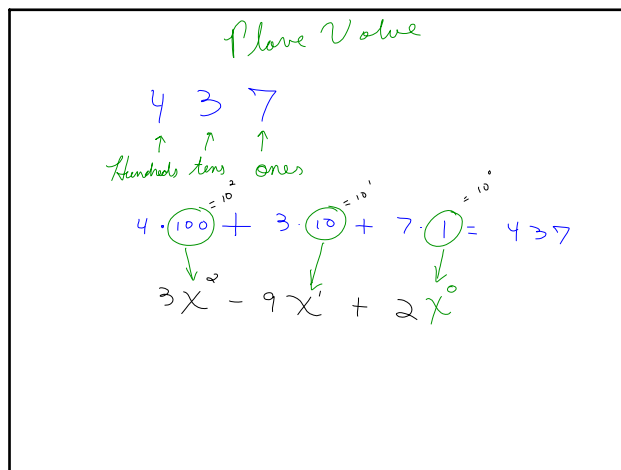 Place Value
4 3 7
Hundreds tens ones
4 · 100 = 10² + 3 · 10 = 10¹ + 7 · 1 = 10⁰ = 437
3x² - 9x¹ + 2x⁰